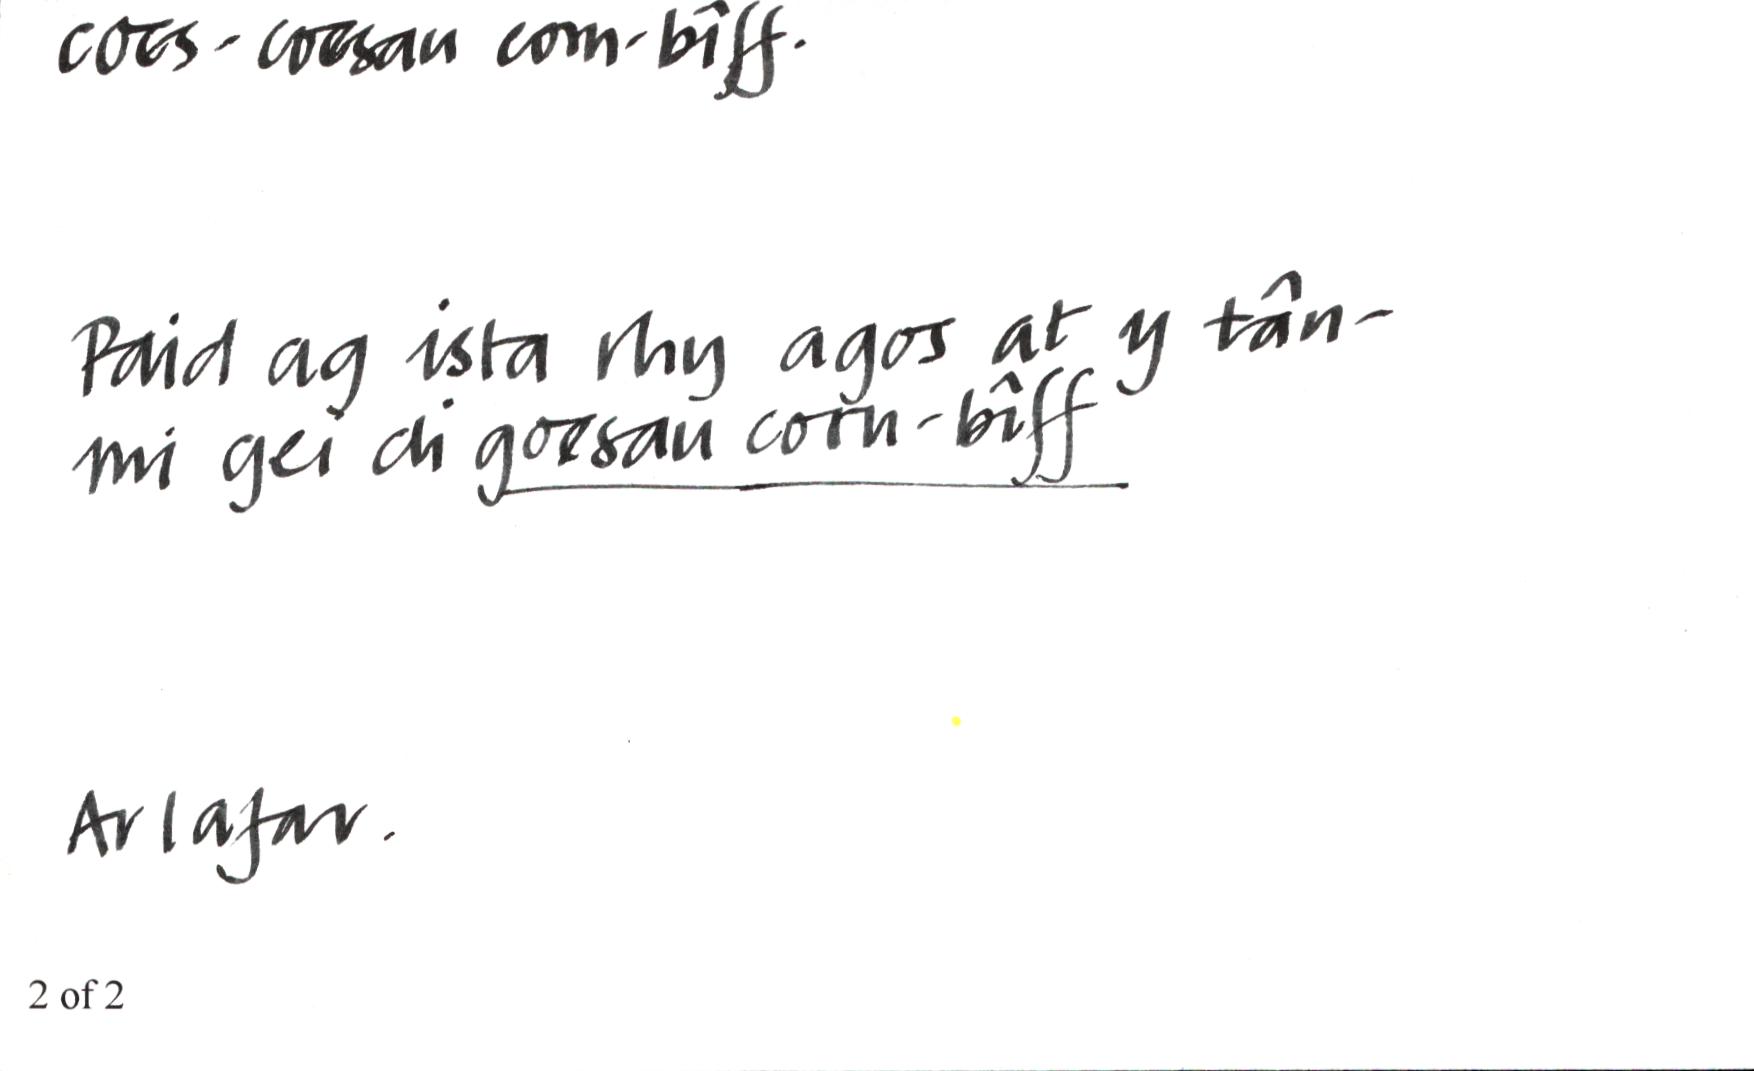 coes - coesau corn-bîff.
Paid ag ista rhy agos at y tân -
mi gei di goesau corn-bîff
Ar lafar.
2 of 2